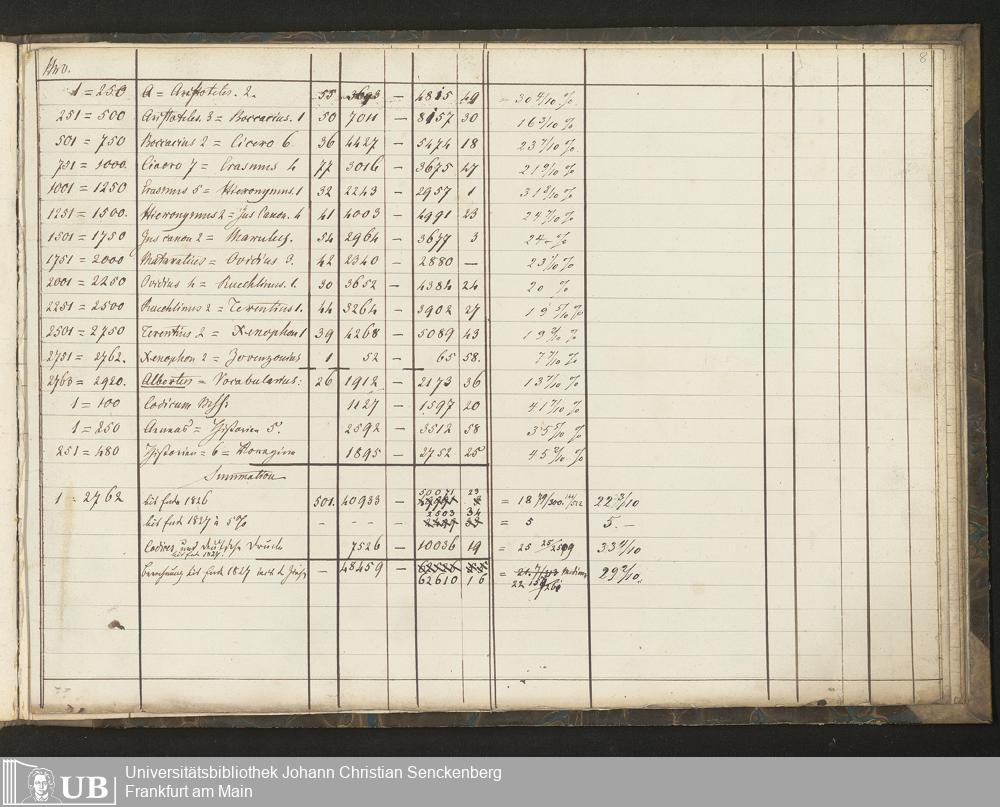 8
Nro.
1 = 250 A = Aristoteles. 2. 55 3693 — 4815 49 = 30 4/10 %
251 = 500 Aristoteles. 3 = Boccacius. 1 50 7011 — 8157 30 16 3/10 %
501 = 750 Boccacius 2 = Cicero 6. 36 4427 — 5474 18 23 7/10 %
751 = 1000. Cicero 7 = Erasmus 4 77 3016 — 3675 47 21 9/10 %
1001 = 1250 Erasmus 5 = Hieronymus. 1 32 2243 — 2957 1 31 8/10 %
1251 = 1500. Hieronymus 2 = Jus Canon. 4 41 4003 — 4991 23 24 7/10 %
1501 = 1750 Jus canon 2 = Marulus. 54 2964 — 3677 3 24 - %
1751 = 2000 Mataratius = Ovidius 3. 42 2340 — 2880 — 23 1/10 %
2001 = 2250 Ovidius 4 = Ruechlinus. 1. 30 3652 — 4384 24 20 %
2251 = 2500 Ruechlinus 2 = Terentius 1. 44 3264 — 3902 27 19 5/10 %
2501 = 2750 Terentius 2 = Xenophon 1 39 4268 — 5089 43 19 2/10 %
2751 = 2762. Xenophon 2 = 1 52 — 65 58. 7 7/10 %
2763 = 2920. Albertus = Vocabularius: 26 1912 — 2173 36 13 7/10 %
1 = 100 Codicum 1127 — 1597 20 41 7/10 %
1 = 250 = Historien 5. 2592 — 3512 58 35 5/10 %
251 = 480 Historien = 6 = 1895 — 2752 25 45 2/10 %
Summation
1 = 2762 bis Ende 1826 501. 40933 — 50071 23 = 18 22 3/10
bis Ende 1827 à 5% - - - — 2503 34 = 5 5. —
Codices und deutsche Drucke bis Ende 1827. 7526 — 10036 19 = 25 33 4/10
Berechnung bis Ende 1827 — 48459 — 62610 16 = 22 29 2/10
UB
Universitätsbibliothek Johann Christian Senckenberg
Frankfurt am Main